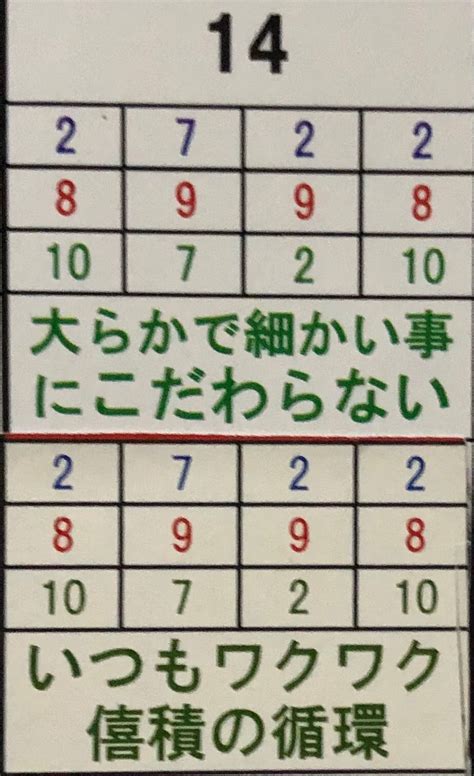 14
2 7 2 2
8 9 9 8
10 7 2 10
大らかで細かい事
にこだわらない
2 7 2 2
8 9 9 8
10 7 2 10
いつもワクワク
僖積の循環